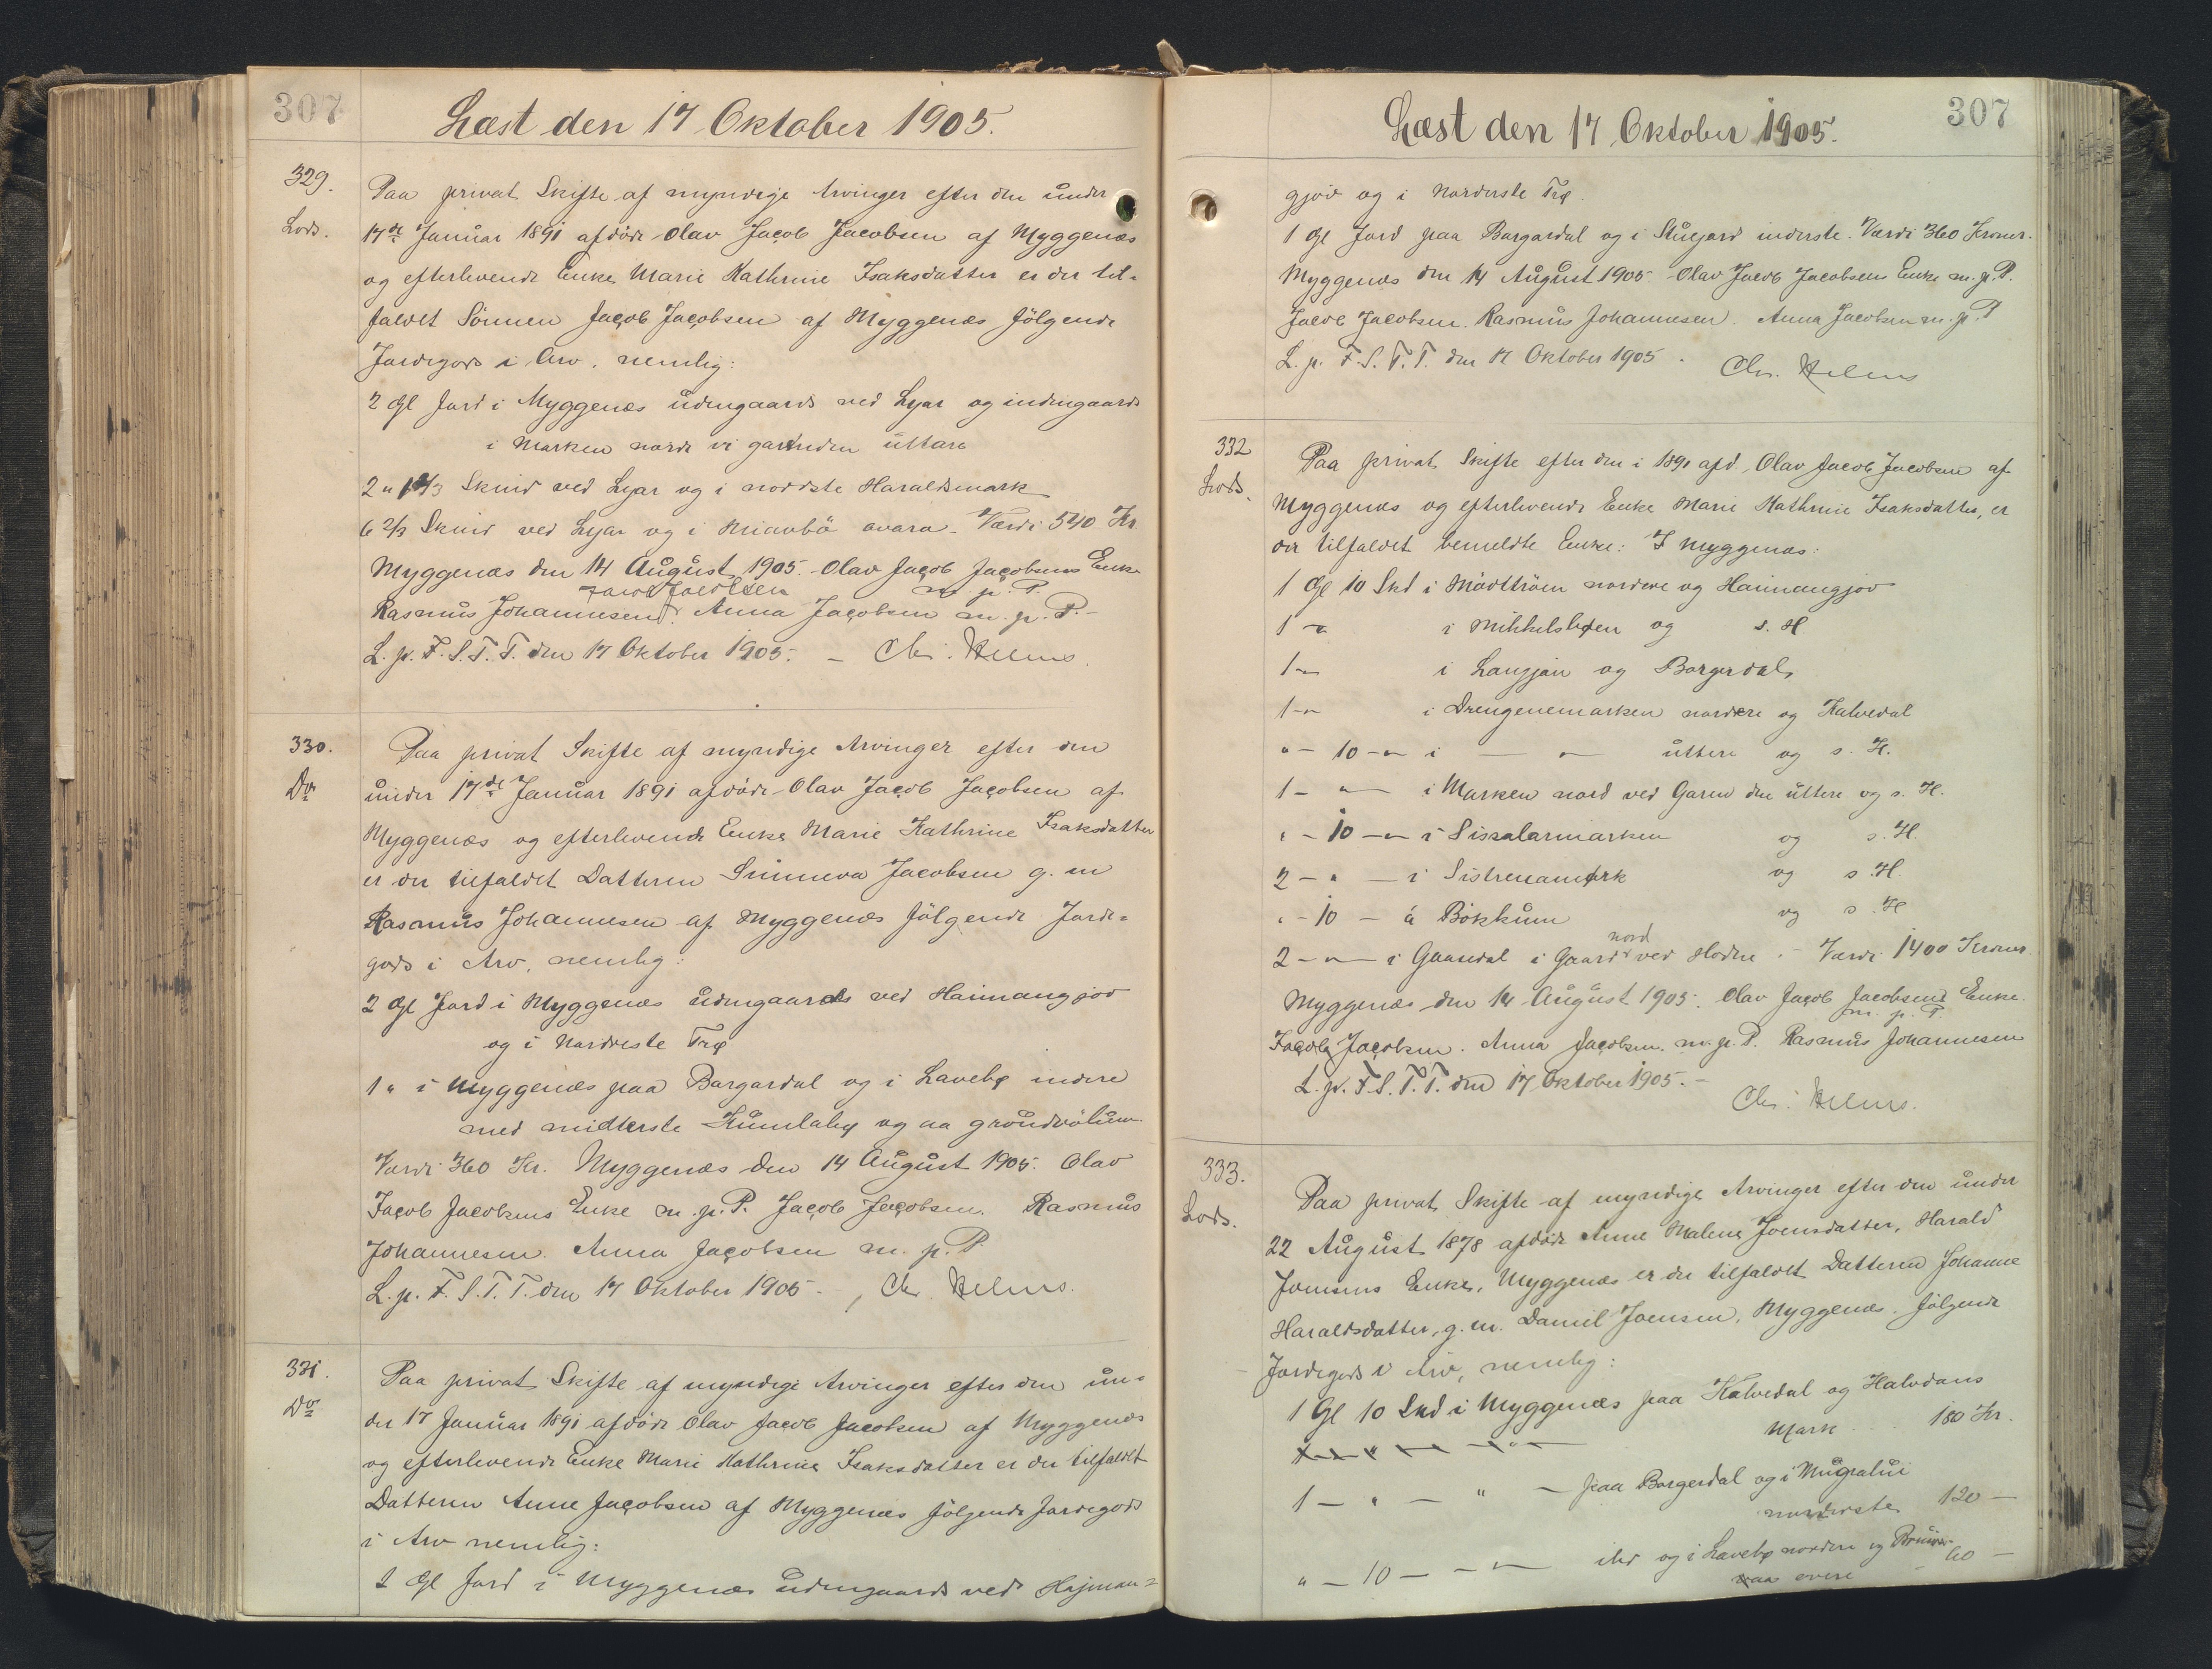 307
Læst den 17 Oktober 1905.
329.
Lods.
Paa privat Skifte af myndige Arvinger efter den under
17de Januar 1891 afdøde Olav Jacob Jacobsen af Myggenæs
og efterlevende Enke Marie Kathrine Isaksdatter er der til-
faldet Sønnen Jacob Jacobsen af Myggenæs følgende
Jordegods i Arv, nemlig:
2 Gl Jord i Myggenæs udengaards ved Lyar og indengaards
i Marken norde vi garenden uttare
2 " 13 1/3 Skind ved Lyar og i nordste Haraldsmark
6 2/3 Skind ved Lyar og i Mianbö ovara. Værdi 540 Kr.
Myggenæs den 14 August 1905. Olav Jacob Jacobsens Enke
Jacob Jacobsen m. p. P.
Rasmus Johannesen. Anna Jacobsen m. p. P.-
L. p. F. S. T. T. den 17 Oktober 1905. - Chr. Helms.
330.
Do
Paa privat Skifte af myndige Arvinger efter den
under 17de Januar 1891 afdøde Olav Jacob Jacobsen af
Myggenæs og efterlevende Enke Marie Kathrine Isaksdatter
er der tilfaldet Datteren Sunneva Jacobsen g. m
Rasmus Johannesen af Myggenæs følgende Jorde-
gods i Arv, nemlig:
2 Gl Jord i Myggenæs udengaards ved Haimangjov
og i Nordreste Trø
1 " i Myggenæs paa Borgardal og i Lavebø indere
med midterste Kumlabø og aa gröndvölum.
Værdi 360 Kr. Myggenæs den 14 August 1905. Olav
Jacob Jacobsens Enke m. p. P. Jacob Jacobsen. Rasmus
Johannesen. Anna Jacobsen m. p. P.
L. p. F. S. T. T. den 17 Oktober 1905. -, Chr. Helms.
331.
Do
Paa privat Skifte af myndige Arvinger efter den un-
der 17 Januar 1891 afdøde Olav Jacob Jacobsen af Myggenæs
og efterlevende Enke Marie Kathrine Isaksdatter er der tilfaldet
Datteren Anne Jacobsen af Myggenæs følgende Jordegods
i Arv nemlig:
2 Gl Jord i Myggenæs udengaards ved Hajman-
307
Læst den 17 Oktober 1905.
gjov og i Norderste Trø.
1 Gl Jord paa Borgardal og i Stuejord inderste. Værdi 360 Kroner.
Myggenæs den 14 August 1905. Olav Jacob Jacobsens Enke m. p. P.
Jacob Jacobsen. Rasmus Johannesen. Anna Jacobsen m. p. P
L. p. F. S. T. T. den 17 Oktober 1905. Chr. Helms
332
Lods.
Paa privat Skifte efter den i 1891 afd. Olav Jacob Jacobsen af
Myggenæs og efterlevende Enke Marie Kathrine Isaksdatter, er
der tilfaldet bemeldte Enke: I Myggenæs:
1 Gl 10 Skd i Mødttröen nordere og Haimangjov
1 - " i Mikkelsløen og s. H
1 - " i Langjan og Borgerdal
1 - " i Drengenemarken nordere og Kalvedal
" - 10 - " i — " — uttere og s. H.
1 - " — i Marken nord ved Garen den uttere og s. H.
" - 10 - " i Sissalarmarken og s. H.
2 - " — i Sistrenamørk og s. H.
" - 10 - á Bökkum og s. H
2 - " — i Gaasedal i Gaard nord ved Hodne. - Værdi 1400 Kroner.
Myggenæs den 14 August 1905. Olav Jacob Jacobsens Enke
m. p. P.
Jacob Jacobsen. Anna Jacobsen. m. p. P. Rasmus Johannesen
L. p. F. S. T. T. den 17 Oktober 1905. -
Chr. Helms.
333.
Lods.
Paa privat Skifte af myndige Arvinger efter den under
22 August 1878 afdøde Anne Malene Joensdatter, Harald
Joensens Enke, Myggenæs er der tilfaldet Datteren Johanne
Haraldsdatter, g. m. Daniel Joensen, Myggenæs. følgende
Jordegods i Arv, nemlig:
1 Gl 10 Skd i Myggenæs paa Kalvedal og Halvdans
Mark 180 Kr.
1 — " — " — paa Borgerdal og i
norderste 120 —
" — 10 — - " — ibd og i Lavebø nordere og
aa overe - 60 —